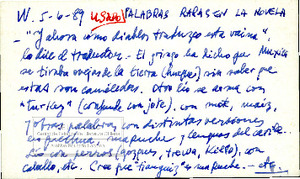 W. 5-6-89 USNO PALABRAS RARAS EN LA NOVELA
- "Y ahora cómo diablos traduzco esta vaina",
lo dice el traductor. - El gringo ha dicho que Muxica
se tiraba ovejas de la tierra (hueque) sin saber que
estas son camélidos. Otro lío se arma con
"turkey" (confunde con jote), con mote, maíz,
y otras palabras con distintas versiones
en quechua, mapuche, lenguas del caribe.
Lío con perros (gozques, trewa, kiltro), con
caballo, etc. Cree que "tianguez" es mapuche. - etc.